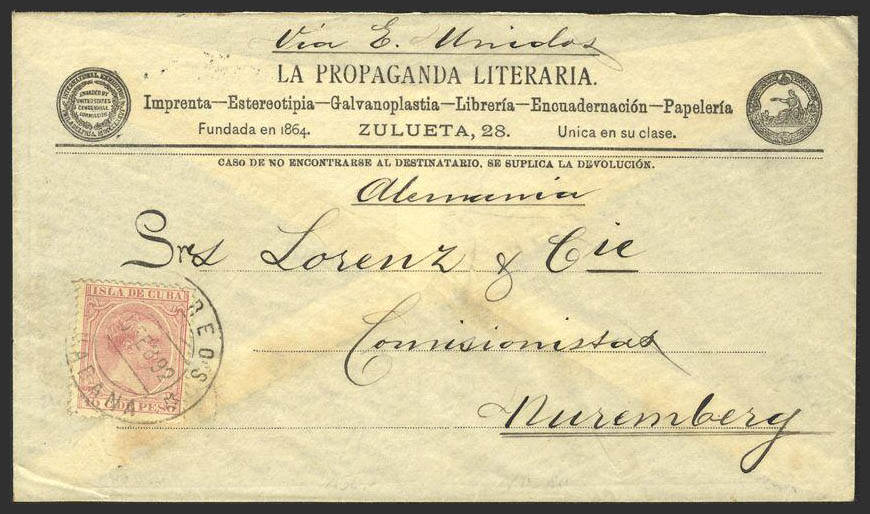 Via E. Unidos
LA PROPAGANDA LITERARIA.
Imprenta—Estereotipia—Galvanoplastia—Librería—Encuadernación—Papelería
Fundada en 1864. ZULUETA, 28. Unica en su clase.
CASO DE NO ENCONTRARSE AL DESTINATARIO, SE SUPLICA LA DEVOLUCIÓN.
INTERNATIONAL
AWARDED BY
UNITED STATES
CENTENNIAL
COMMISSION
Alemania
Sres Lorenz & Cie
Comisionistas
Nuremberg
ISLA DE CUBA
PESO
CORREOS
92
HABANA